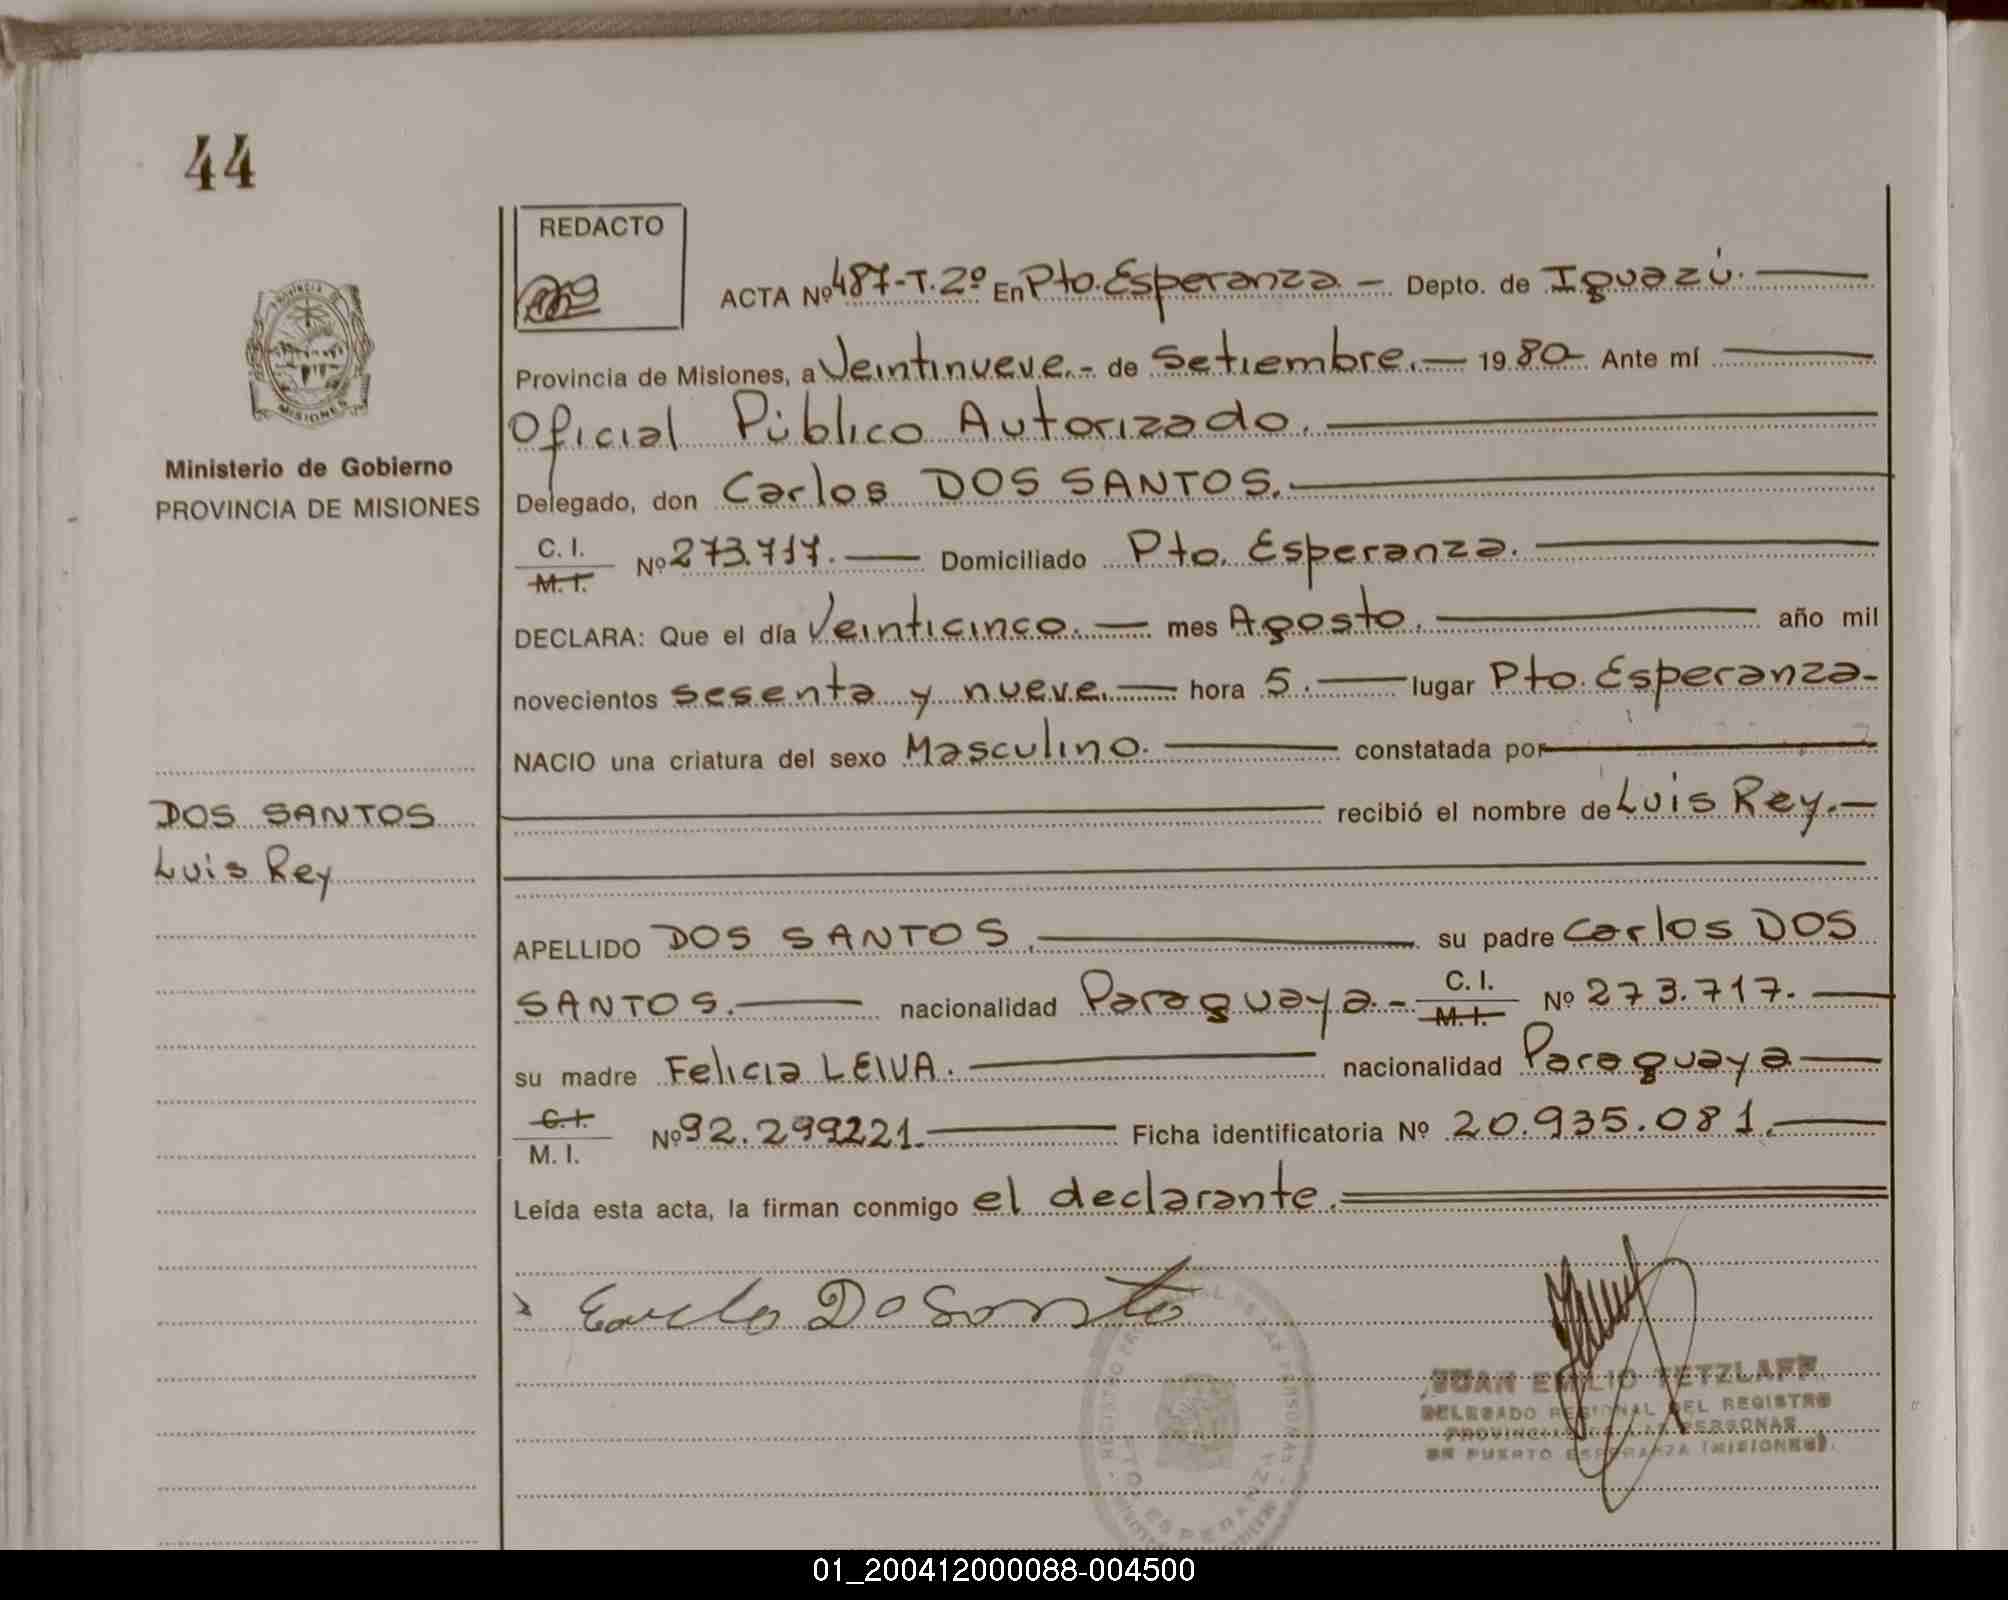 44
REDACTO
ACTA Nº 487-T.2º En Pto. Esperanza.- Depto. de Iguazú.
Provincia de Misiones, a Veintinueve.- de Setiembre.- 1980- Ante mí
Oficial Público Autorizado.
Delegado, don Carlos DOS SANTOS.
C. I.
M. I.
Nº 273.717. Domiciliado Pto. Esperanza.
DECLARA: Que el día Veinticinco. mes Agosto. año mil
novecientos sesenta y nueve. hora 5. lugar Pto. Esperanza-
NACIO una criatura del sexo Masculino. constatada por
recibió el nombre de Luis Rey.
APELLIDO DOS SANTOS. su padre Carlos DOS
SANTOS. nacionalidad Paraguaya.- C. I.
M. I.
Nº 273.717.
su madre Felicia LEIVA. nacionalidad Paraguaya
C. I.
M. I.
Nº 92.299221. Ficha identificatoria Nº 20.935.081.
Leída esta acta, la firman conmigo el declarante.
PROVINCIA DE
MISIONES
Ministerio de Gobierno
PROVINCIA DE MISIONES
DOS SANTOS
Luis Rey
JUAN EMILIO TETZLAFF
DELEGADO REGIONAL DEL REGISTRO
PROVINCIAL DE LAS PERSONAS
EN PUERTO ESPERANZA (MISIONES)
REGISTRO PROVINCIAL DE LAS PERSONAS
PTO. ESPERANZA
01_200412000088-004500